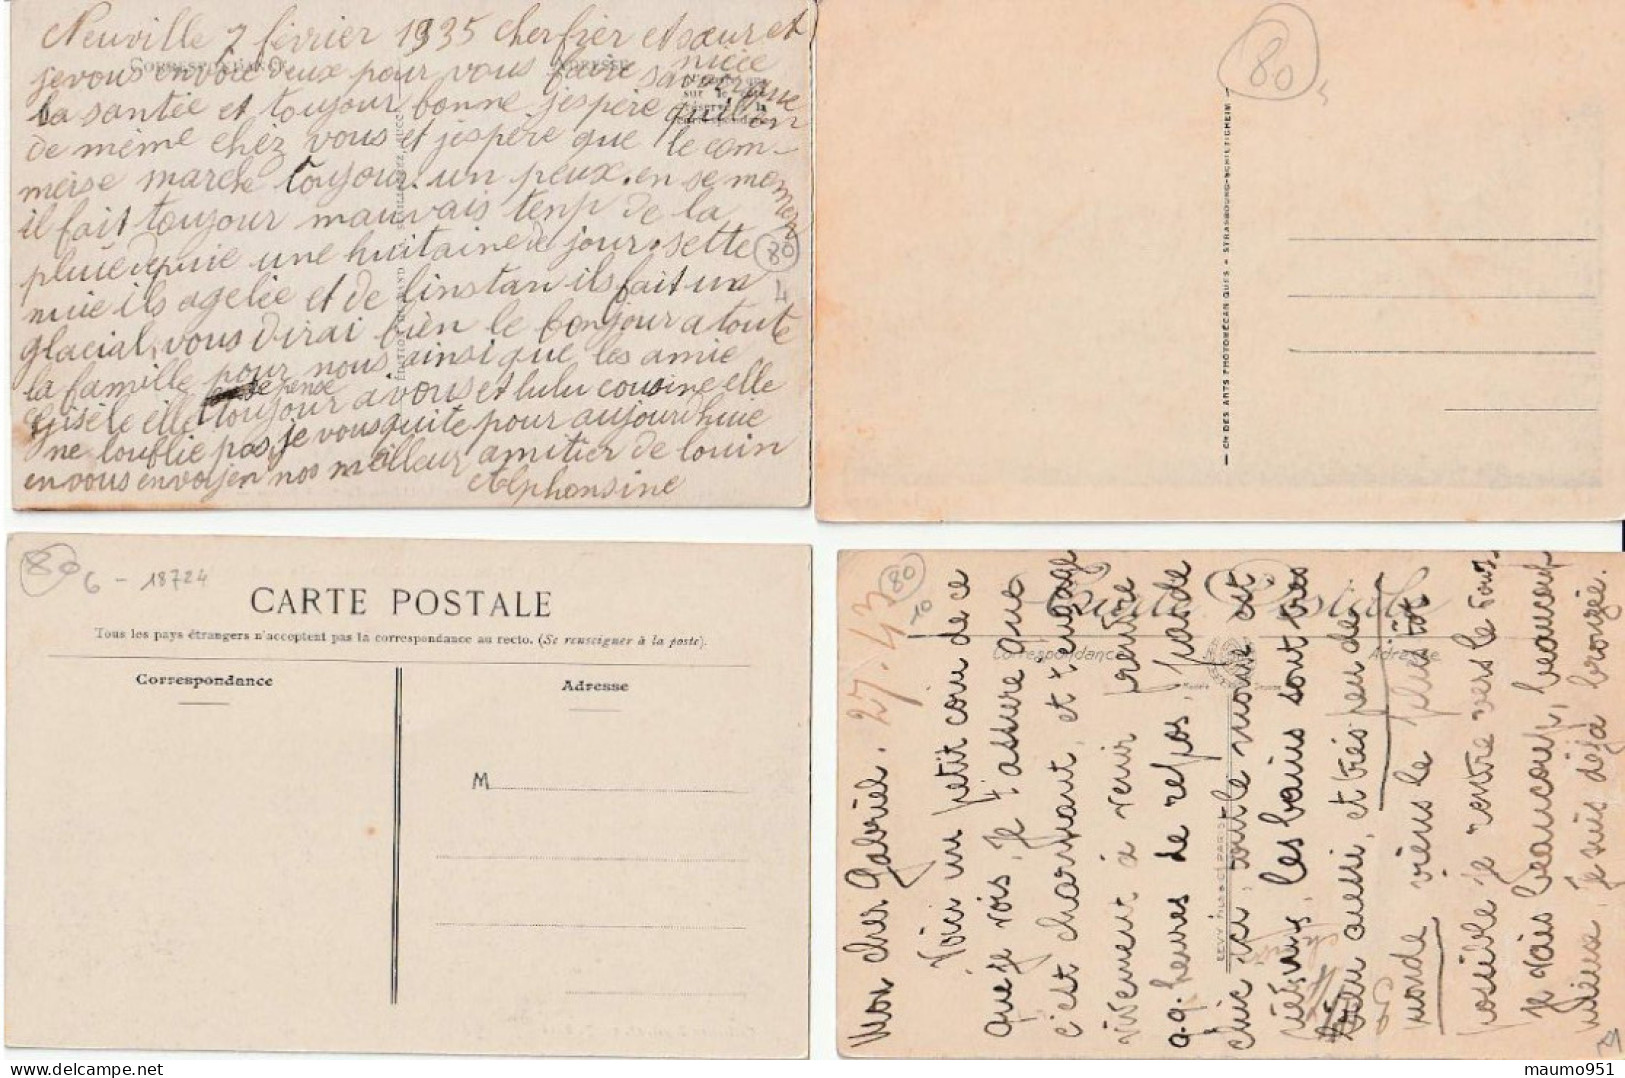 Neuville 7 février 1935 cher frier et sœur et
nièce
CORRESPONDANCE
ADRESSE
je vous envoie deux pour vous faire savoir que
la santée et toujour bonne j'espère quil en
de même chéz vous et j'espère que le com-
merse marche toujour. un peux. en se moment
il fait toujour mauvais tenp de la
pluie depuie une huitaine de jour. sette
nuie ils agelée et de linstan ils fait un
glacial, vous dirai bien le bonjour a toute
la famille pour nous ainsi que les amie
Gisèle elle pense toujour a vous et lulu cousine elle
ne loublie pas, je vous quite pour aujourdhuie
en vous envoyen nos meilleur amitier de louin
Alphonsine
80
4
80
5
— Cie DES ARTS PHOTOMÉCANIQUES - STRASBOURG-SCHILTIGHEIM —
80
6 - 18724
CARTE POSTALE
Tous les pays étrangers n'acceptent pas la correspondance au recto. (Se renseigner à la poste).
Correspondance
Adresse
M
80
10
Carte Postale
Correspondance
Adresse
LEVY FILS & Cie PARIS
27.43
Mon cher Gabriel.
Voici un petit coin de ce
que je vois, je t'assure que
c'est charmant, et t'engage
vivement à venir prendre
q.q. heures de repos,
chic ici, tout le monde est
les bains sont très
bien aussi, et très peu de
monde viens le plus tôt
possible je rentre vers le
je vais beaucoup, beaucoup, beaucoup
mieux, je suis déjà bronzée.
maumo951